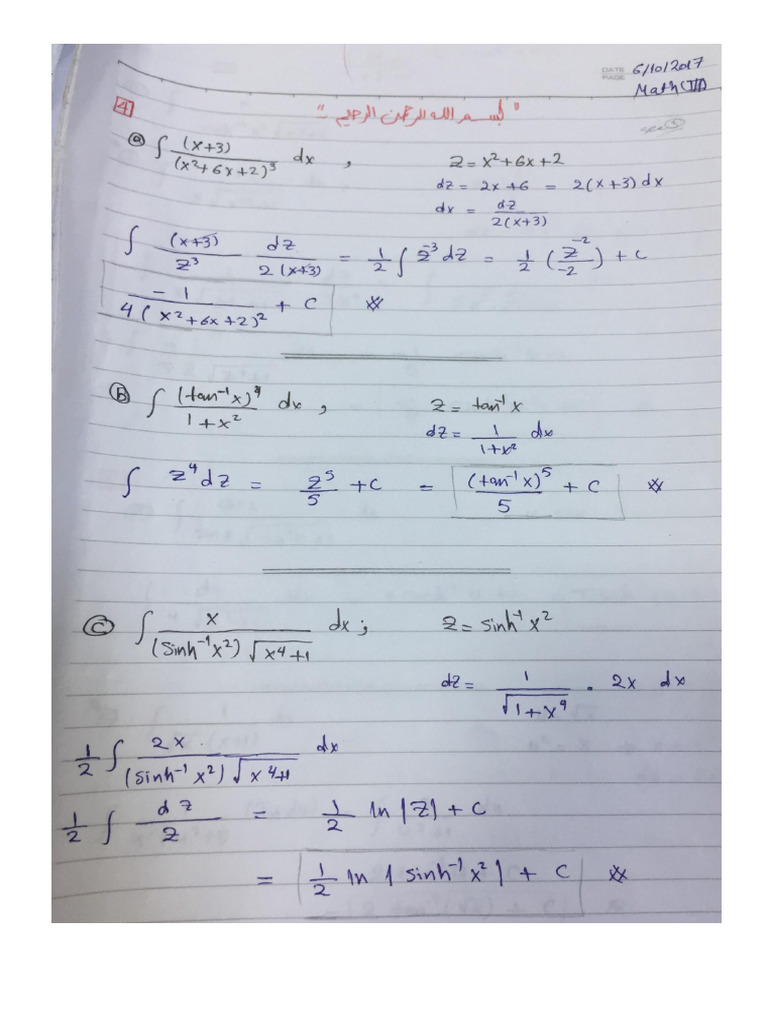 DATE 6/10/2017
PAGE Math (III)
"بسم الله الرحمن الرحيم"
4
(a) ∫ (x+3)/(x²+6x+2)³ dx , z = x²+6x+2
dz = 2x+6 = 2(x+3) dx
dx = dz/2(x+3)
∫ (x+3)/z³ dz/2(x+3) = 1/2 ∫ z⁻³ dz = 1/2 (z⁻²/-2) + c
-1/4(x²+6x+2)² + c
(B) ∫ (tan⁻¹x)⁴/1+x² dx , z = tan⁻¹x
dz = 1/1+x² dx
∫ z⁴dz = z⁵/5 + c = (tan⁻¹x)⁵/5 + c
(C) ∫ x/(sinh⁻¹x²)√x⁴+1 dx ; z = sinh⁻¹x²
dz = 1/√1+x⁴ . 2x dx
1/2 ∫ 2x/(sinh⁻¹x²)√x⁴+1 dx
1/2 ∫ dz/z = 1/2 ln|z| + c
= 1/2 ln|sinh⁻¹x²| + c